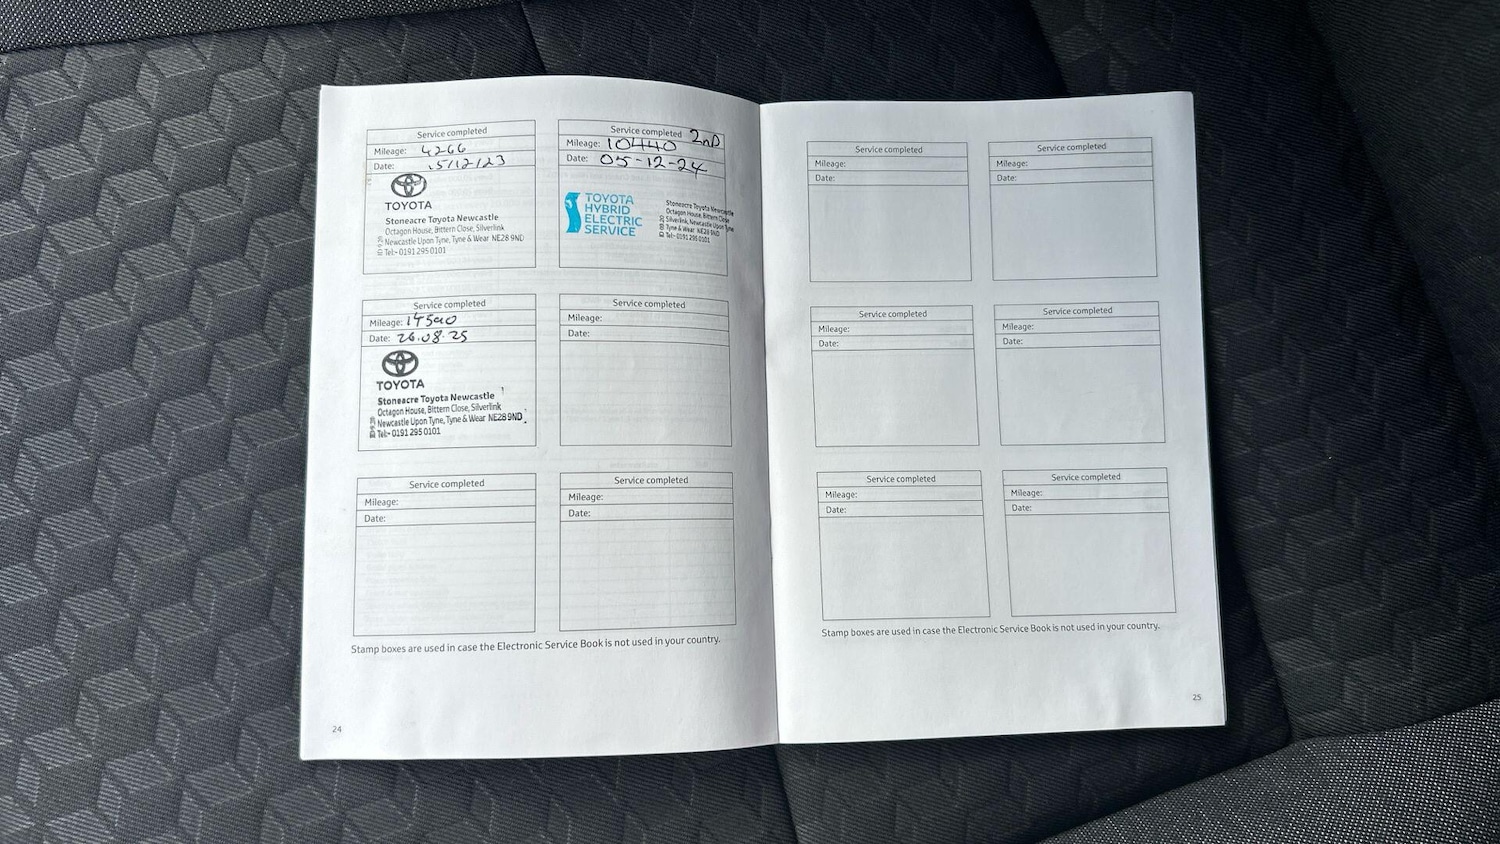 Service completed
Mileage: 4266
Date: 5/12/23
TOYOTA
Stoneacre Toyota Newcastle
Octagon House, Bittern Close, Silverlink
Newcastle Upon Tyne, Tyne & Wear NE28 9ND
Tel:- 0191 295 0101
Service completed 2nD
Mileage: 10440
Date: 05-12-24
TOYOTA
HYBRID
ELECTRIC
SERVICE
Stoneacre Toyota Newcastle
Octagon House, Bittern Close
Silverlink, Newcastle Upon Tyne
Tyne & Wear NE28 9ND
Tel:- 0191 295 0101
Service completed
Mileage:
Date: 26.08.25
TOYOTA
Stoneacre Toyota Newcastle
Octagon House, Bittern Close, Silverlink
Newcastle Upon Tyne, Tyne & Wear NE28 9ND
Tel:- 0191 295 0101
Service completed
Mileage:
Date:
Service completed
Mileage:
Date:
Service completed
Mileage:
Date:
Stamp boxes are used in case the Electronic Service Book is not used in your country.
24
Service completed
Mileage:
Date:
Service completed
Mileage:
Date:
Service completed
Mileage:
Date:
Service completed
Mileage:
Date:
Service completed
Mileage:
Date:
Service completed
Mileage:
Date:
Stamp boxes are used in case the Electronic Service Book is not used in your country.
25